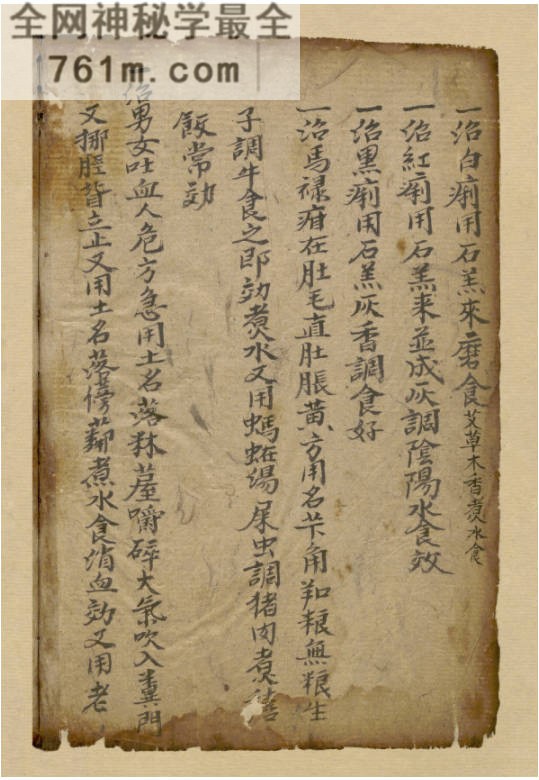 全网神秘学最全
761m.com
一治白痢用石羔來磨食艾草木香煮水食
一治紅痢用石羔来並成灰調陰陽水食效
一治黒痢用石羔灰香調食好
一治馬禄疳在肚毛直肚脹黄方用名苄角和粮無粮生
子調牛食之即効煮水又用螞蚯湯屎虫調猪肉煮
飯常効
治男女吐血人危方急用土名落嚼碎大氣吹入粪門
又挪脛皆立止又用土名落傍煮水食消血効又用老